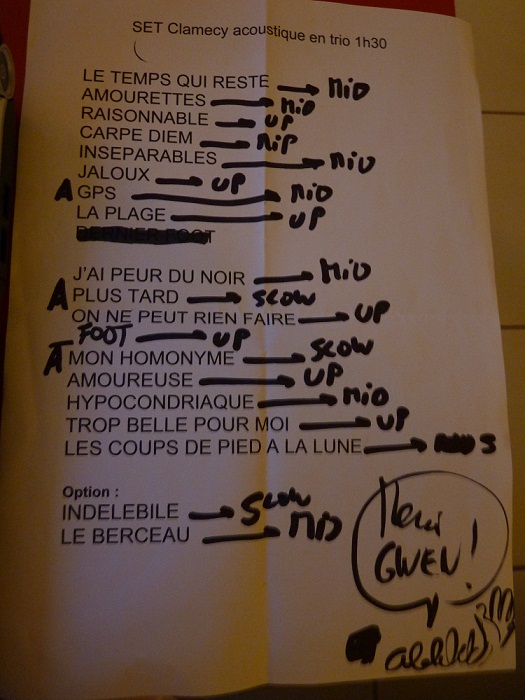 SET Clamecy acoustique en trio 1h30
LE TEMPS QUI RESTE → MID
AMOURETTES → MID
RAISONNABLE → UP
CARPE DIEM → MID
INSEPARABLES → MID
JALOUX → UP
A GPS → MID
LA PLAGE → UP
DERNIER FOOT
J'AI PEUR DU NOIR → MID
A PLUS TARD → SLOW
ON NE PEUT RIEN FAIRE → UP
FOOT → UP
A MON HOMONYME → SLOW
AMOUREUSE → UP
HYPOCONDRIAQUE → MID
TROP BELLE POUR MOI → UP
LES COUPS DE PIED A LA LUNE → S
Option :
INDELEBILE → SLOW
LE BERCEAU → MID
Merci
GWEN!